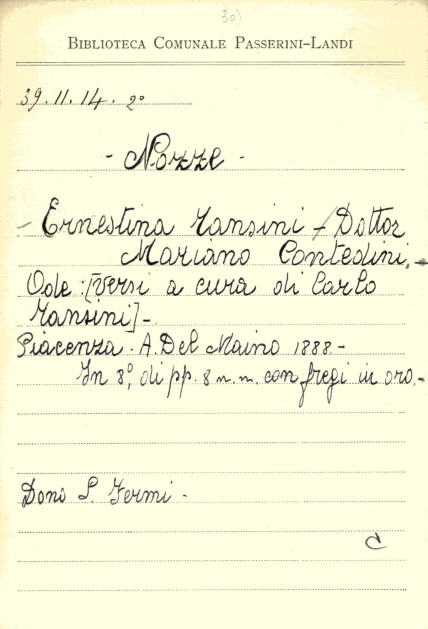 30)
BIBLIOTECA COMUNALE PASSERINI-LANDI
39.11.14.2°
- Nozze -
- Ernestina Ransini - Dottor
Mariano Contedini.-
Ode: [Versi a cura di Carlo
Ransini]-
Piacenza. A. Del Maino 1888-
In 8°, di pp. 8 n.n. con fregi in oro.-
Dono S. Fermi -
C